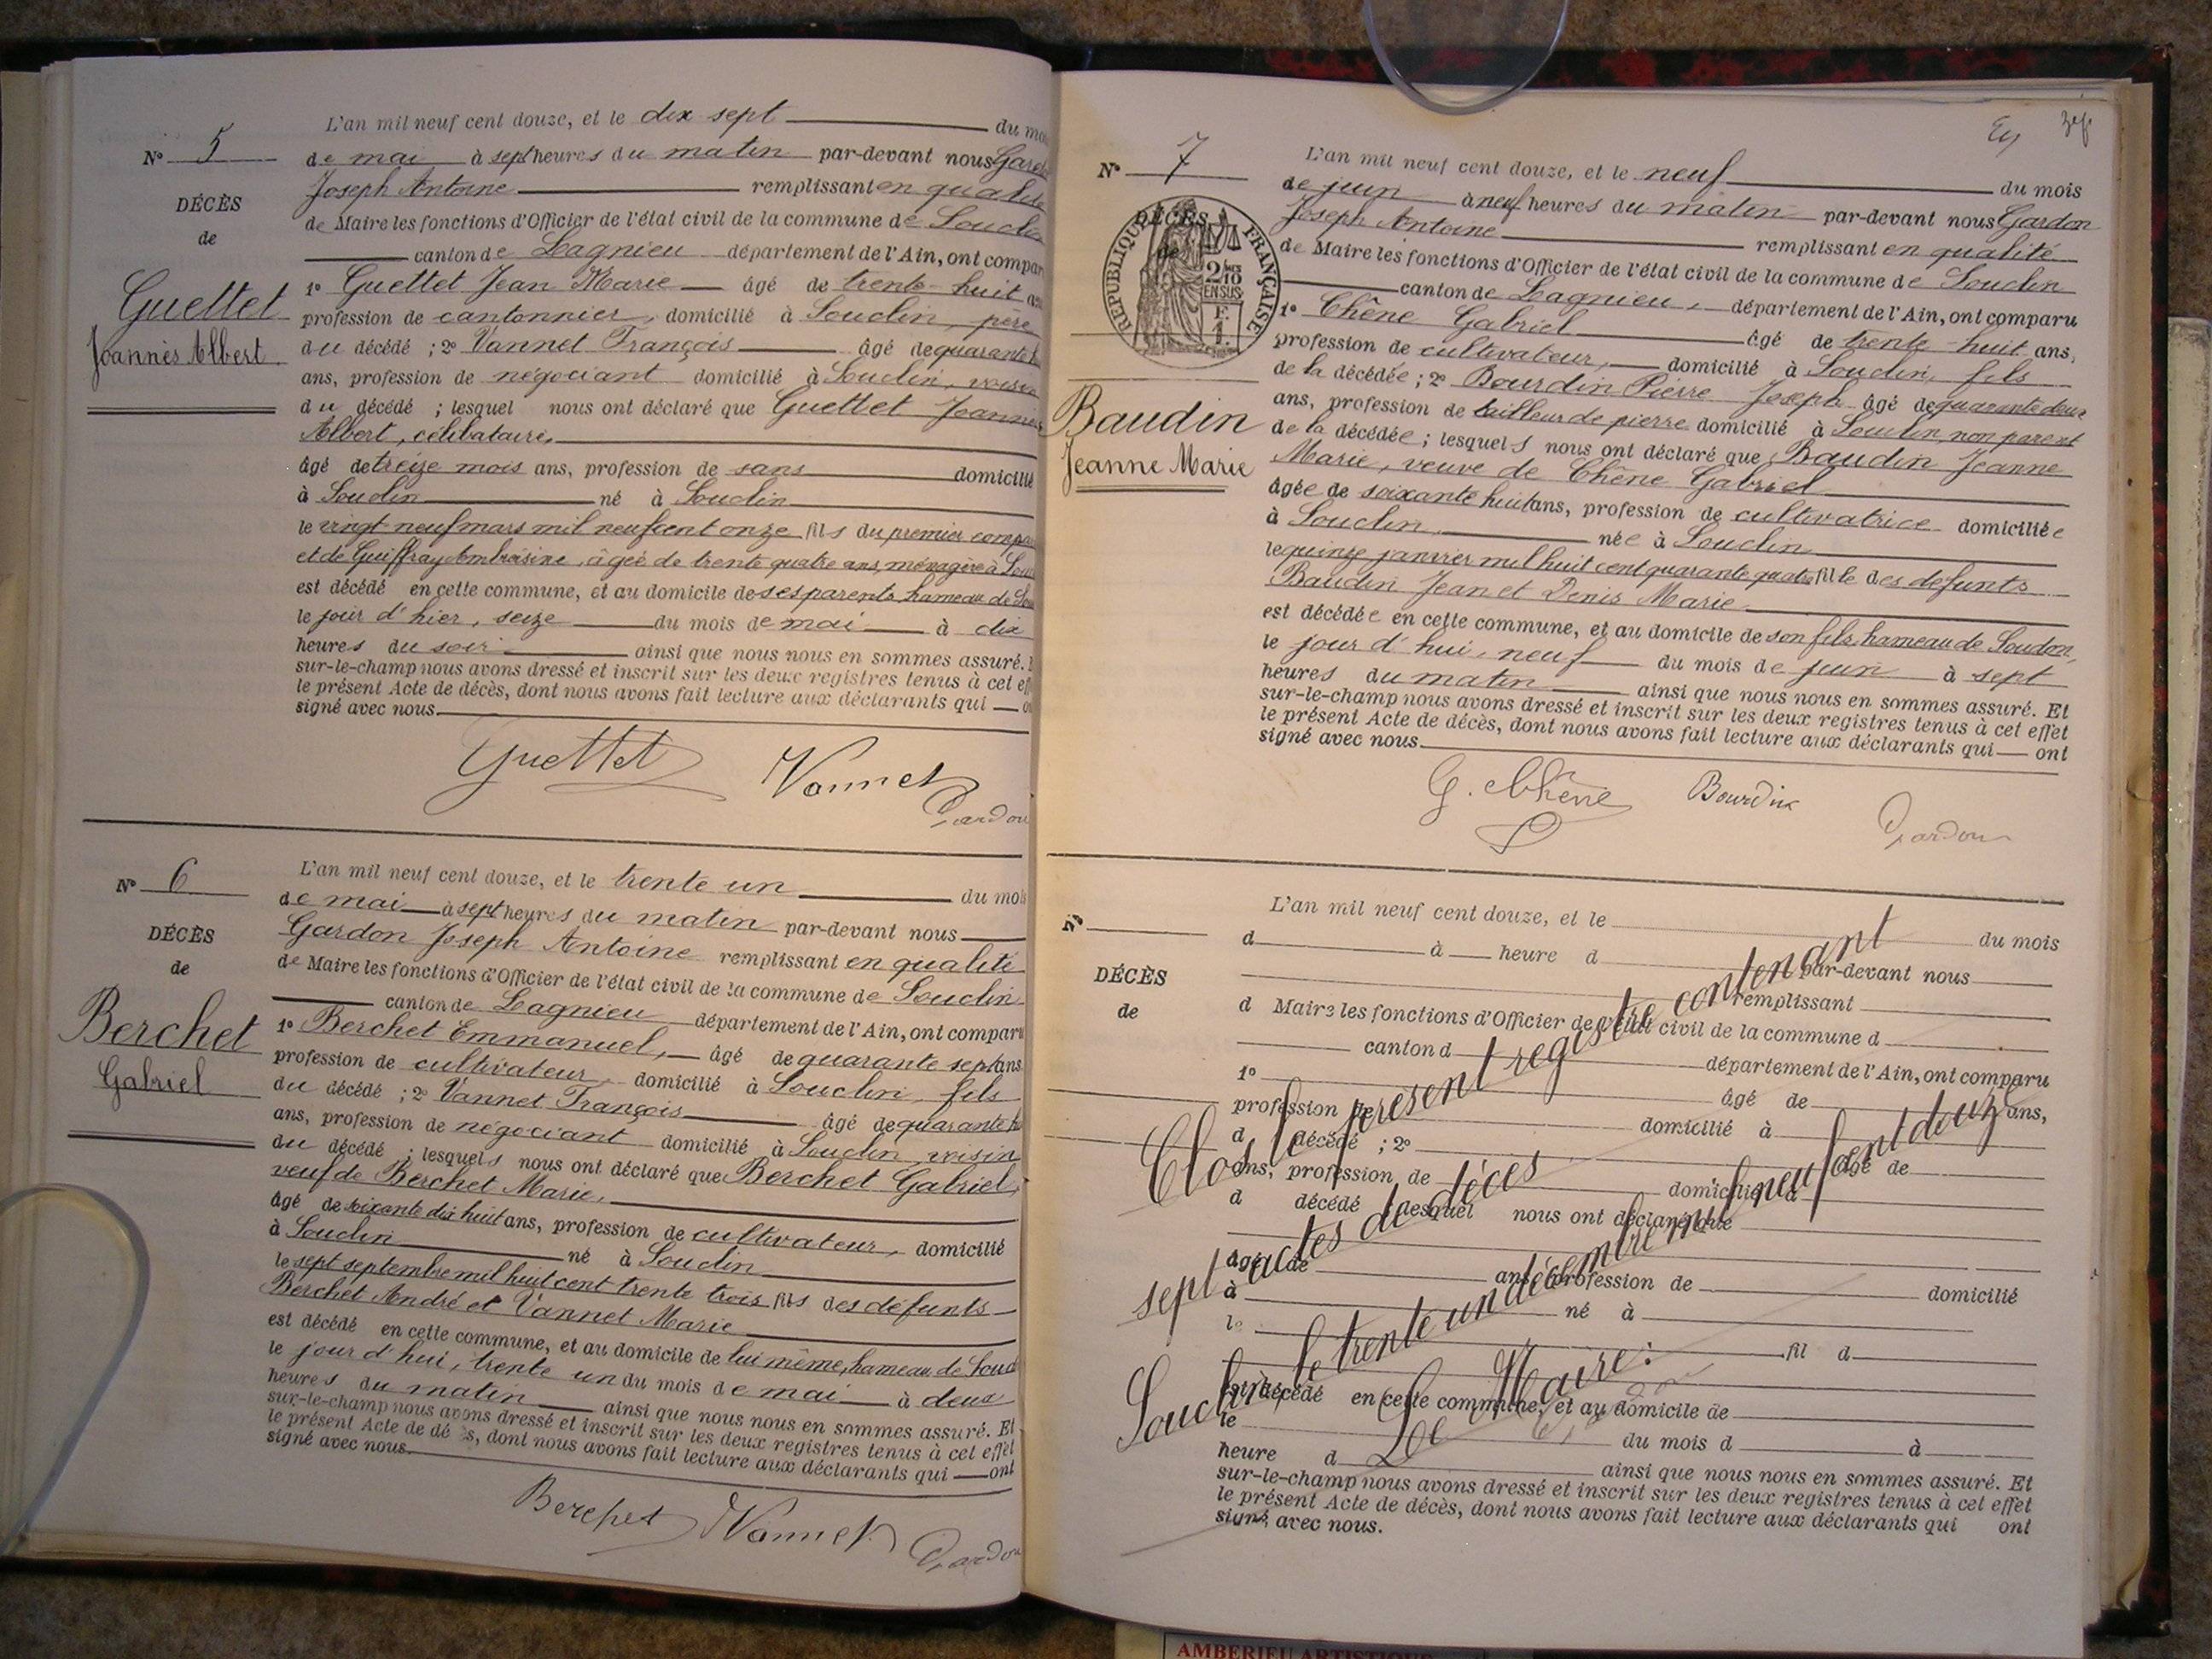 L'an mil neuf cent douze, et le dix sept du mo
N° 5
de mai à sept heures du matin par-devant nous Gard
Joseph Antoine remplissant en qualité
DÉCÈS
de Maire les fonctions d'Officier de l'état civil de la commune de Souclin
de
canton de Lagnieu département de l'Ain, ont compar
Guettet
1° Guettet Jean Marie âgé de trente-huit an
profession de cantonnier, domicilié à Souclin, père
Joannès Albert
du décédé ; 2° Vannet François âgé de quarante
ans, profession de négociant domicilié à Souclin, voisin
du décédé ; lesquel nous ont déclaré que Guettet Joannès
Albert, célibataire,
âgé de treize mois ans, profession de sans domicilié
à Souclin né à Souclin
le vingt-neuf mars mil neuf cent onze fils du premier compa
et de Guiffray Ambroisine, âgée de trente quatre ans, ménagère à Sou
est décédé en cette commune, et au domicile de ses parents, hameau de Sou
le jour d'hier, seize du mois de mai à dix
heures du soir ainsi que nous nous en sommes assuré.
sur-le-champ nous avons dressé et inscrit sur les deux registres tenus à cet eff
le présent Acte de décès, dont nous avons fait lecture aux déclarants qui
signé avec nous.
Guettet Vannet
Gardon
L'an mil neuf cent douze, et le trente un du moi
N° 6
de mai à sept heures du matin par-devant nous
Gardon Joseph Antoine remplissant en qualité
DÉCÈS
de Maire les fonctions d'Officier de l'état civil de la commune de Souclin
de
canton de Lagnieu département de l'Ain, ont comparu
Berchet
1° Berchet Emmanuel, âgé de quarante sept ans
profession de cultivateur, domicilié à Souclin, fils
Gabriel
du décédé ; 2° Vannet François âgé de quarante
ans, profession de négociant domicilié à Souclin, voisin
du décédé ; lesquels nous ont déclaré que Berchet Gabriel,
veuf de Berchet Marie,
âgé de soixante dix huit ans, profession de cultivateur, domicilié
à Souclin né à Souclin
le sept septembre mil huit cent trente trois fils des défunts
Berchet André et Vannet Marie
est décédé en cette commune, et au domicile de lui même, hameau de Soud
le jour d'hui, trente un du mois de mai à deux
heures du matin ainsi que nous nous en sommes assuré. Et
sur-le-champ nous avons dressé et inscrit sur les deux registres tenus à cet effet
le présent Acte de décès, dont nous avons fait lecture aux déclarants qui ont
signé avec nous.
Berchet Vannet Gardon
L'an mil neuf cent douze, et le neuf du mois
N° 7
de juin à neuf heures du matin par-devant nous Gardon
Joseph Antoine remplissant en qualité
DÉCÈS
de
RÉPUBLIQUE FRANÇAISE
2/10 EN SUS
F. 1.
de Maire les fonctions d'Officier de l'état civil de la commune de Souclin
canton de Lagnieu, département de l'Ain, ont comparu
1° Chêne Gabriel âgé de trente-huit ans,
profession de cultivateur, domicilié à Souclin, fils
de la décédée ; 2° Bourdin Pierre Joseph âgé de quarante deux
Baudin
ans, profession de tailleur de pierre domicilié à Souclin, non parent
de la décédée ; lesquels nous ont déclaré que Baudin Jeanne
Jeanne Marie
Marie, veuve de Chêne Gabriel
âgée de soixante huit ans, profession de cultivatrice domiciliée
à Souclin, née à Souclin
le quinze janvier mil huit cent quarante quatre fille des défunts
Baudin Jean et Denis Marie
est décédée en cette commune, et au domicile de son fils, hameau de Soudon,
le jour d'hui, neuf du mois de juin à sept
heures du matin ainsi que nous nous en sommes assuré. Et
sur-le-champ nous avons dressé et inscrit sur les deux registres tenus à cet effet
le présent Acte de décès, dont nous avons fait lecture aux déclarants qui ont
signé avec nous.
G. Chêne Bourdin Gardon
L'an mil neuf cent douze, et le du mois
N°
d à heure d par-devant nous
remplissant
DÉCÈS
d Maire les fonctions d'Officier de l'état civil de la commune d
de
canton d département de l'Ain, ont comparu
1° âgé de ans,
profession de domicilié à
d décédé ; 2° âgé de
ans, profession de domicilié à
d décédé lesquel nous ont déclaré que
âgé de ans, profession de domicilié
à né à
le fil d
est décédé en cette commune, et au domicile de
le du mois d à
heure d ainsi que nous nous en sommes assuré. Et
sur-le-champ nous avons dressé et inscrit sur les deux registres tenus à cet effet
le présent Acte de décès, dont nous avons fait lecture aux déclarants qui ont
signé avec nous.
Clos le présent registre contenant
sept actes de décès
Souclin, le trente un décembre mil neuf cent douze
Le Maire :
Gardon
AMBERIEU ARTISTIQUE